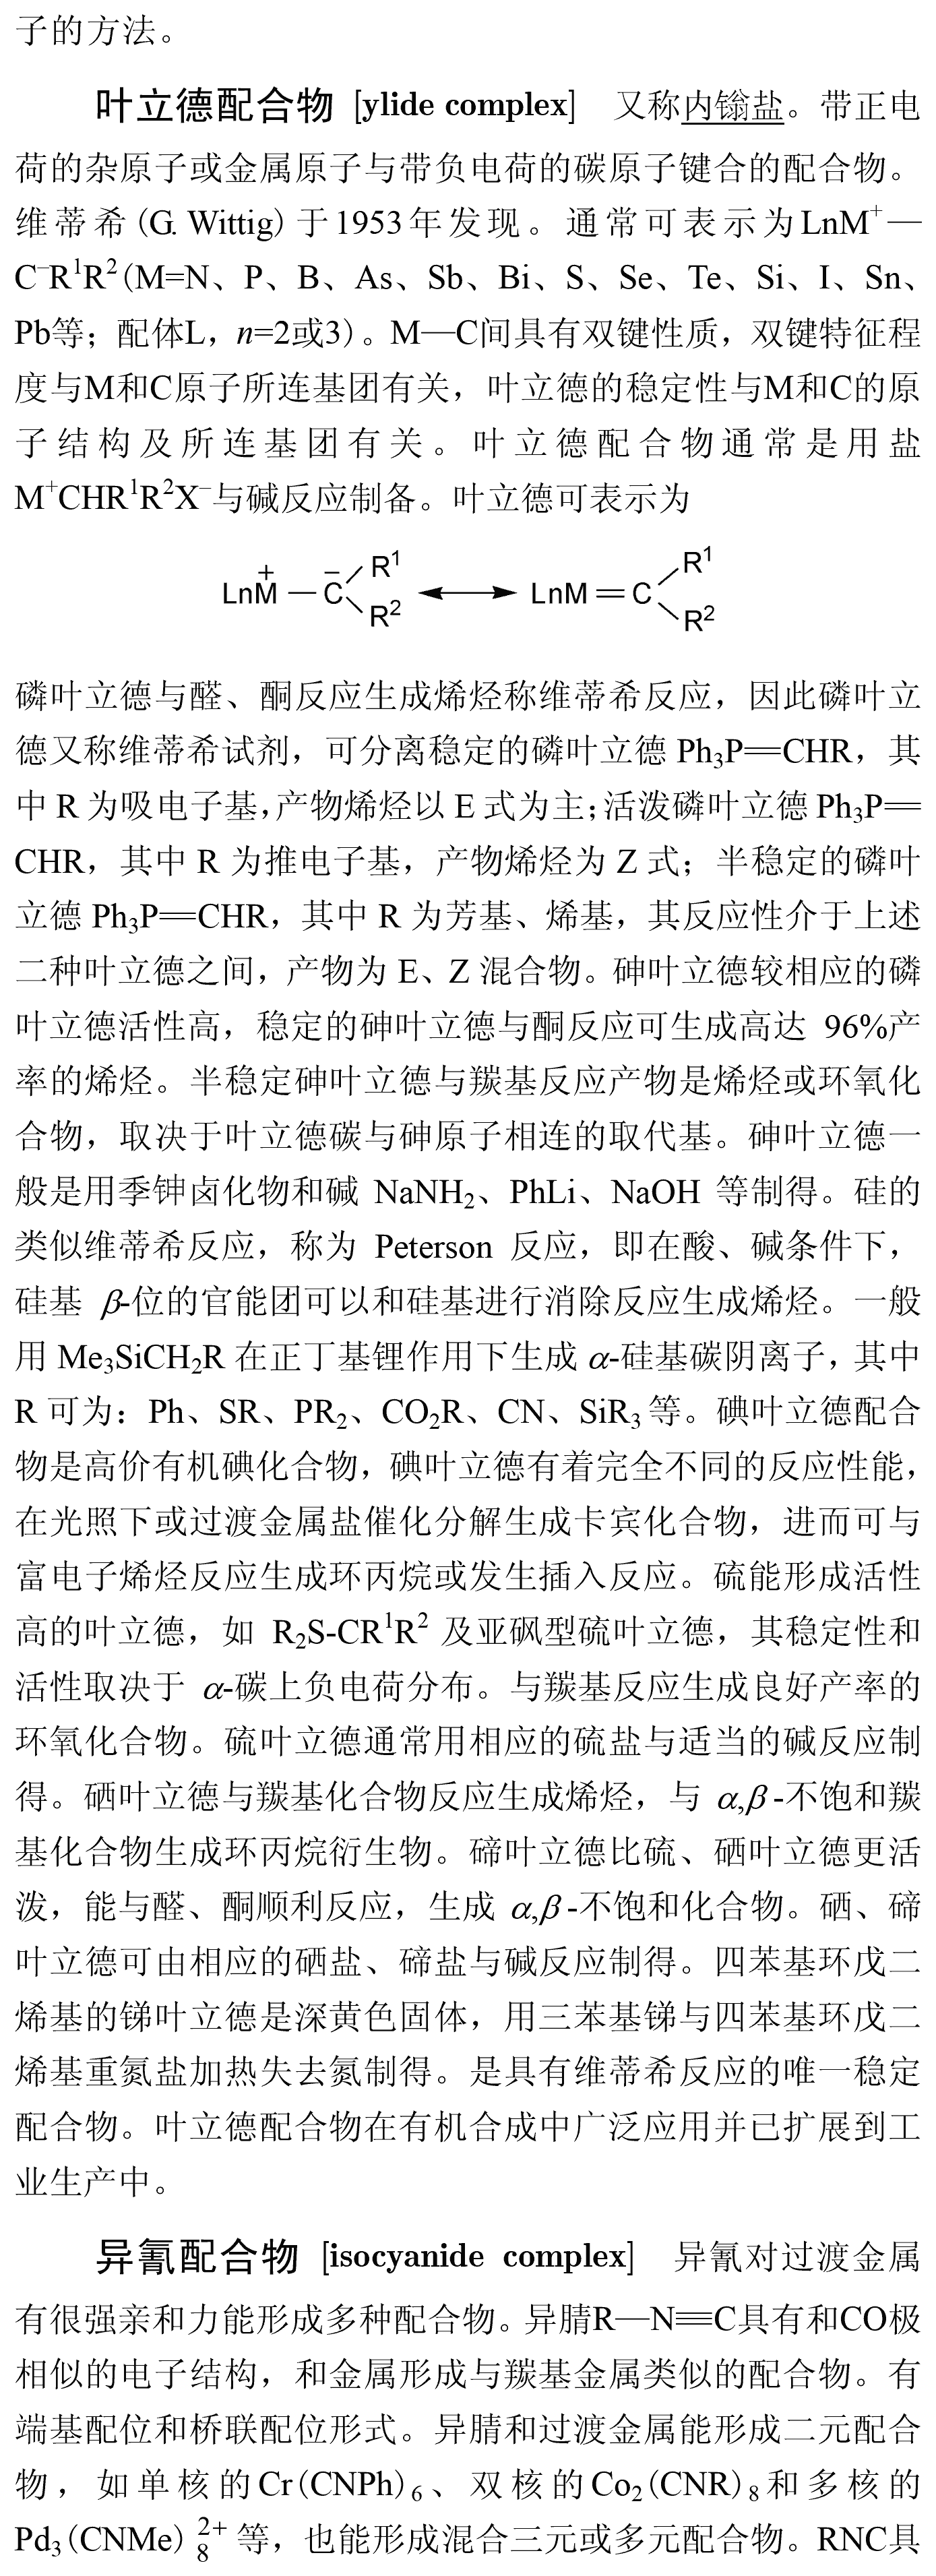 子的方法。
叶立德配合物 [ylide complex] 又称内鎓盐。带正电
荷的杂原子或金属原子与带负电荷的碳原子键合的配合物。
维蒂希(G. Wittig)于1953年发现。通常可表示为LnM⁺—
C⁻R¹R²(M=N、P、B、As、Sb、Bi、S、Se、Te、Si、I、Sn、
Pb等；配体L，n=2或3)。M—C间具有双键性质，双键特征程
度与M和C原子所连基团有关，叶立德的稳定性与M和C的原
子结构及所连基团有关。叶立德配合物通常是用盐
M⁺CHR¹R²X⁻与碱反应制备。叶立德可表示为
LnM⁺—C⁻R¹R² ⟷ LnM=CR¹R²
磷叶立德与醛、酮反应生成烯烃称维蒂希反应，因此磷叶立
德又称维蒂希试剂，可分离稳定的磷叶立德 Ph₃P═CHR，其
中 R 为吸电子基,产物烯烃以 E 式为主;活泼磷叶立德 Ph₃P═
CHR，其中 R 为推电子基，产物烯烃为 Z 式；半稳定的磷叶
立德 Ph₃P═CHR，其中 R 为芳基、烯基，其反应性介于上述
二种叶立德之间，产物为 E、Z 混合物。砷叶立德较相应的磷
叶立德活性高，稳定的砷叶立德与酮反应可生成高达 96%产
率的烯烃。半稳定砷叶立德与羰基反应产物是烯烃或环氧化
合物，取决于叶立德碳与砷原子相连的取代基。砷叶立德一
般是用季钟卤化物和碱 NaNH₂、PhLi、NaOH 等制得。硅的
类似维蒂希反应，称为 Peterson 反应，即在酸、碱条件下，
硅基 β-位的官能团可以和硅基进行消除反应生成烯烃。一般
用 Me₃SiCH₂R 在正丁基锂作用下生成 α-硅基碳阴离子，其中
R 可为：Ph、SR、PR₂、CO₂R、CN、SiR₃ 等。碘叶立德配合
物是高价有机碘化合物，碘叶立德有着完全不同的反应性能，
在光照下或过渡金属盐催化分解生成卡宾化合物，进而可与
富电子烯烃反应生成环丙烷或发生插入反应。硫能形成活性
高的叶立德，如 R₂S-CR¹R² 及亚砜型硫叶立德，其稳定性和
活性取决于 α-碳上负电荷分布。与羰基反应生成良好产率的
环氧化合物。硫叶立德通常用相应的硫盐与适当的碱反应制
得。硒叶立德与羰基化合物反应生成烯烃，与 α,β-不饱和羰
基化合物生成环丙烷衍生物。碲叶立德比硫、硒叶立德更活
泼，能与醛、酮顺利反应，生成 α,β-不饱和化合物。硒、碲
叶立德可由相应的硒盐、碲盐与碱反应制得。四苯基环戊二
烯基的锑叶立德是深黄色固体，用三苯基锑与四苯基环戊二
烯基重氮盐加热失去氮制得。是具有维蒂希反应的唯一稳定
配合物。叶立德配合物在有机合成中广泛应用并已扩展到工
业生产中。
异氰配合物 [isocyanide complex] 异氰对过渡金属
有很强亲和力能形成多种配合物。异腈R—N≡C具有和CO极
相似的电子结构，和金属形成与羰基金属类似的配合物。有
端基配位和桥联配位形式。异腈和过渡金属能形成二元配合
物，如单核的Cr(CNPh)₆、双核的Co₂(CNR)₈和多核的
Pd₃(CNMe)₈²⁺等，也能形成混合三元或多元配合物。RNC具